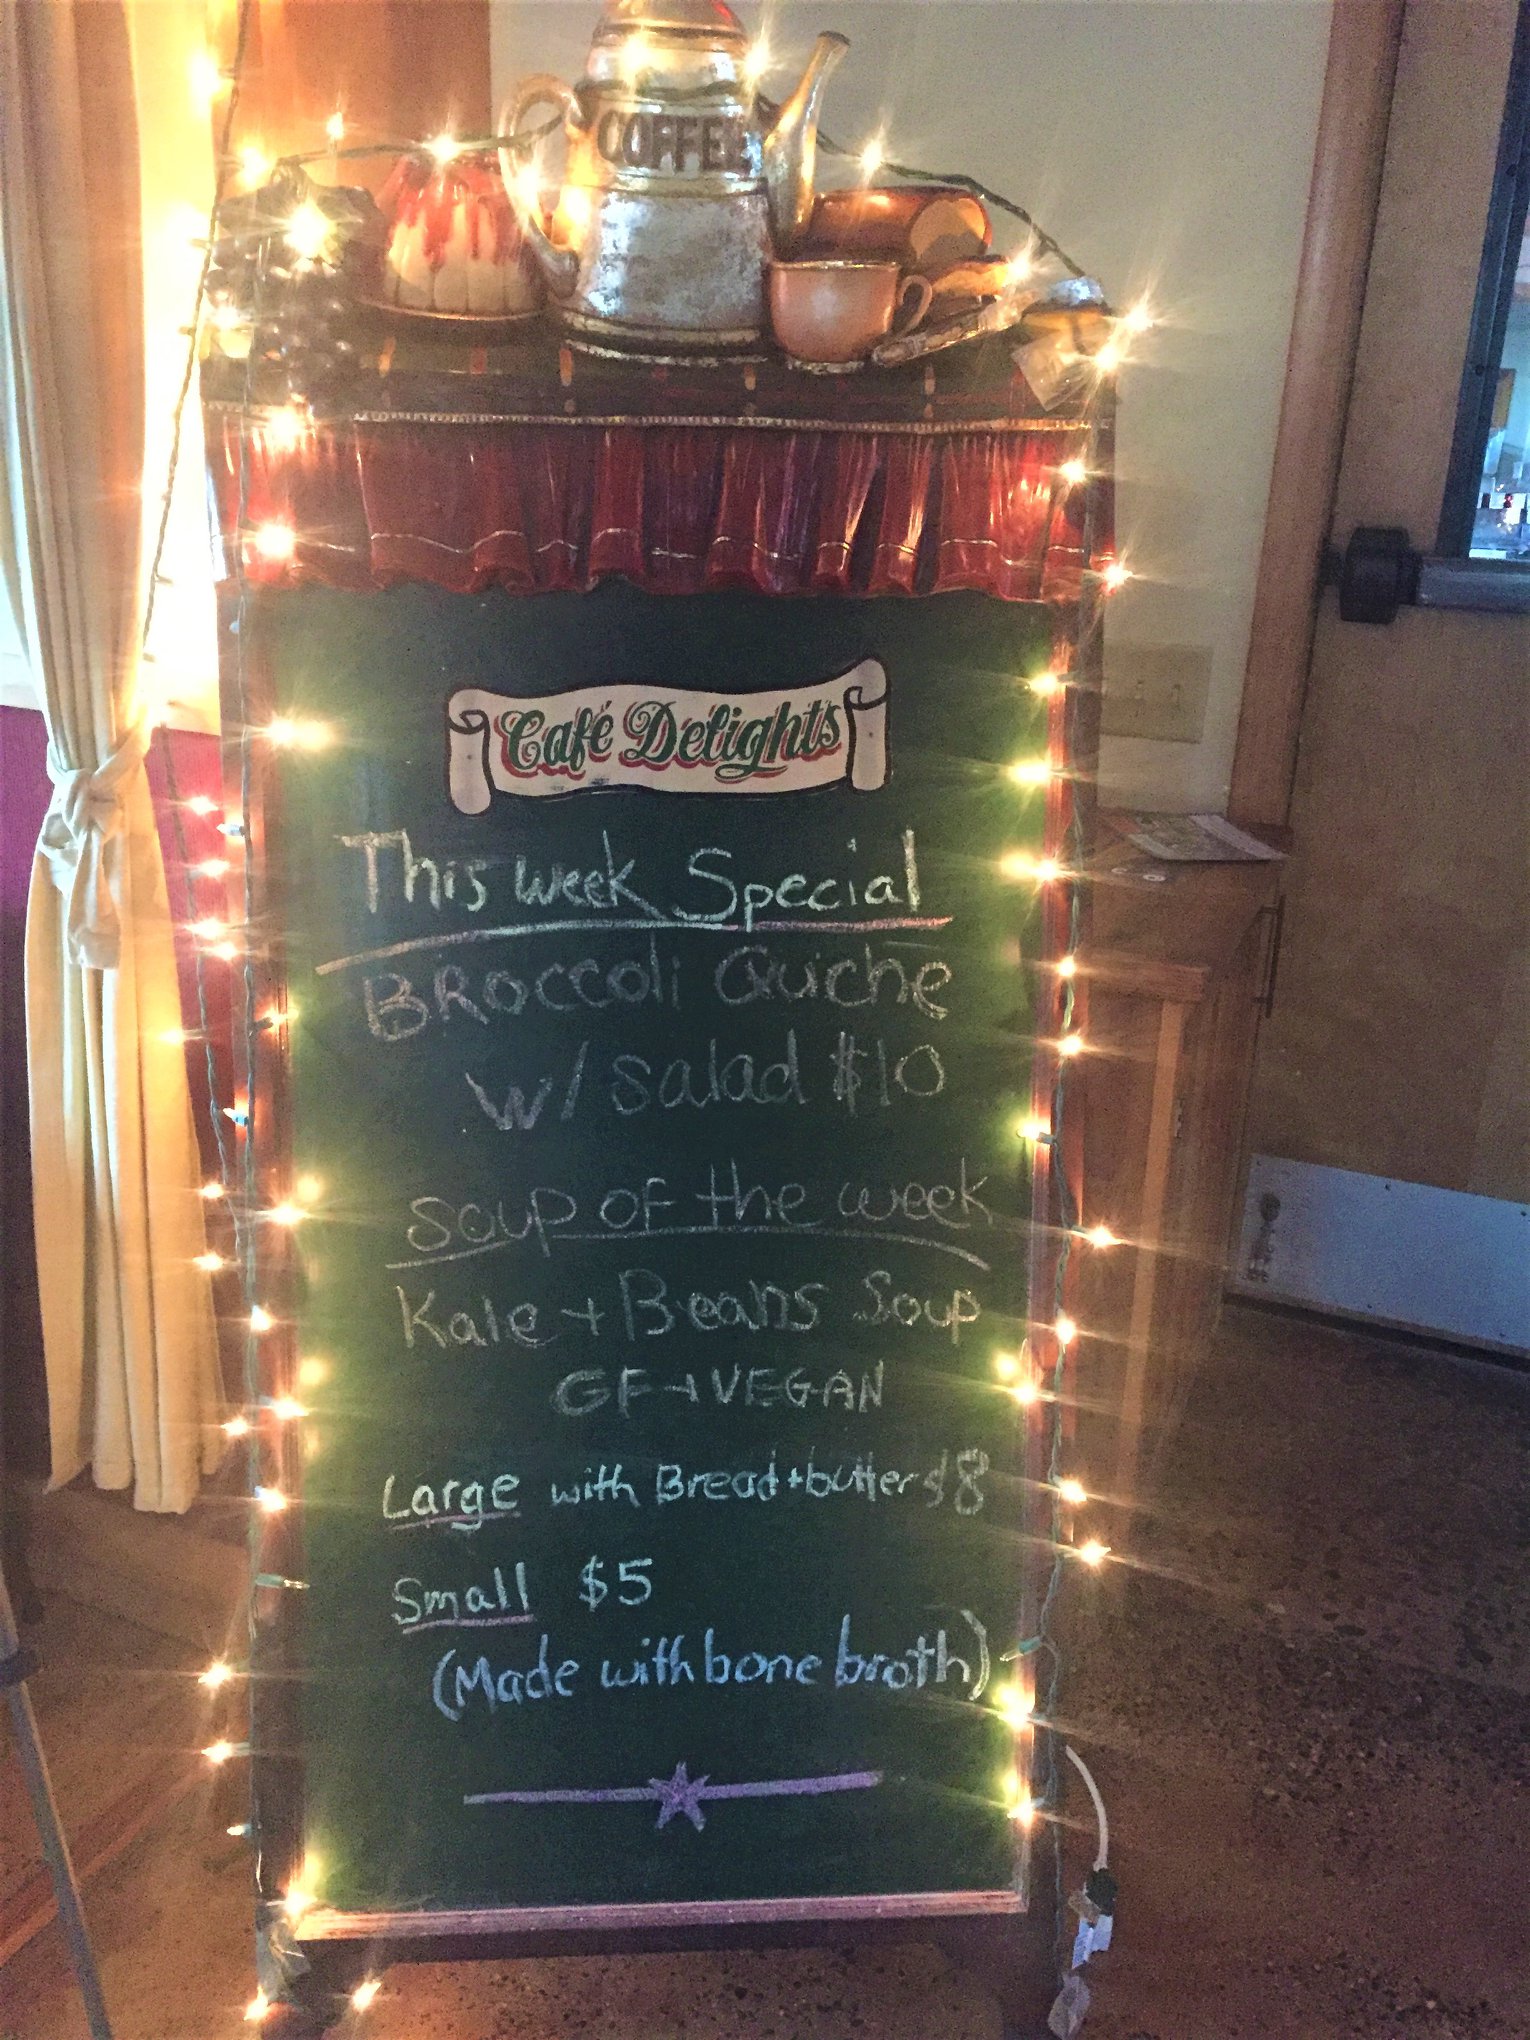 COFFEE
Café Delights
This week Special
BRoccoli Quiche
w/ salad $10
soup of the week
Kale + Beans Soup
GF + VEGAN
Large with Bread + butter $8
Small $5
(Made with bone broth)